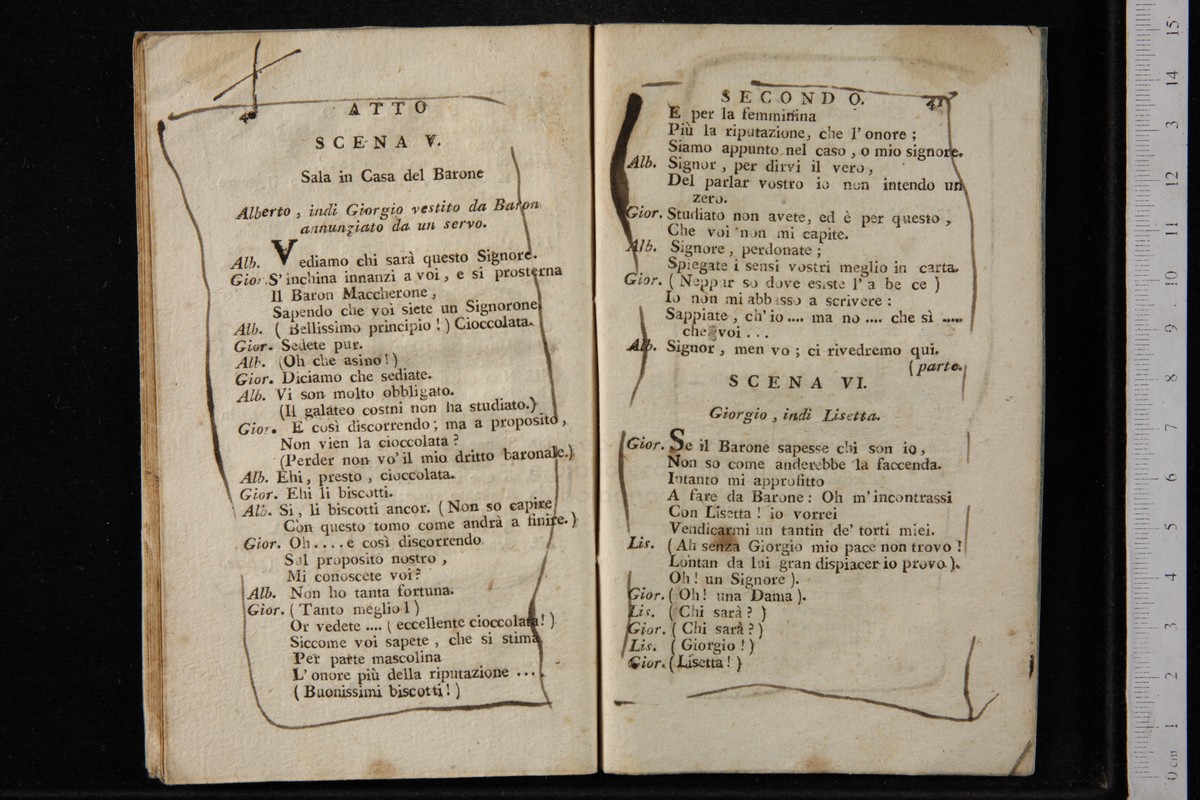 ATTO
SCENA V.
Sala in Casa del Barone
Alberto, indi Giorgio vestito da Baron
annunziato da un servo.
Alb. Vediamo chi sarà questo Signore.
Gior. S'inchina innanzi a voi, e si prosterna
Il Baron Maccherone,
Sapendo che voi siete un Signorone
Alb. ( Bellissimo principio ! ) Cioccolata.
Gior. Sedete pur.
Alb. (Oh che asino!)
Gior. Diciamo che sediate.
Alb. Vi son molto obbligato.
(Il galateo costui non ha studiato.)
Gior. E così discorrendo; ma a proposito,
Non vien la cioccolata?
(Perder non vo' il mio dritto baronale.)
Alb. Ehi, presto, cioccolata.
Gior. Ehi li biscotti.
Alb. Sì, li biscotti ancor. (Non so capire
Con questo tomo come andrà a finire.)
Gior. Oh....e così discorrendo
Sul proposito nostro,
Mi conoscete voi?
Alb. Non ho tanta fortuna.
Gior. (Tanto meglio!)
Or vedete .... ( eccellente cioccolata! )
Siccome voi sapete, che si stima
Per parte mascolina
L'onore più della riputazione ....
( Buonissimi biscotti! )
SECONDO. 41
E per la femminina
Più la riputazione, che l'onore;
Siamo appunto nel caso, o mio signore.
Alb. Signor, per dirvi il vero,
Del parlar vostro io non intendo un
zero.
Gior. Studiato non avete, ed è per questo,
Che voi non mi capite.
Alb. Signore, perdonate;
Spiegate i sensi vostri meglio in carta.
Gior. (Neppur so dove esiste l'a be ce)
Io non mi abbasso a scrivere:
Sappiate, ch'io.... ma no.... che sì .....
che voi...
Alb. Signor, men vo; ci rivedremo qui.
(parte.
SCENA VI.
Giorgio, indi Lisetta.
Gior. Se il Barone sapesse chi son io,
Non so come anderebbe la faccenda.
Intanto mi approfitto
A fare da Barone: Oh m'incontrassi
Con Lisetta! io vorrei
Vendicarmi un tantin de' torti miei.
Lis. (Ah senza Giorgio mio pace non trovo!
Lontan da lui gran dispiacer io provo).
Oh! un Signore).
Gior. (Oh! una Dama).
Lis. (Chi sarà?)
Gior. (Chi sarà?)
Lis. (Giorgio!)
Gior. (Lisetta!)
0 cm 1 2 3 4 5 6 7 8 9 10 11 12 3 14 15